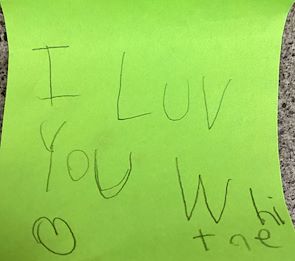 I LUV
YOU Whi
tne